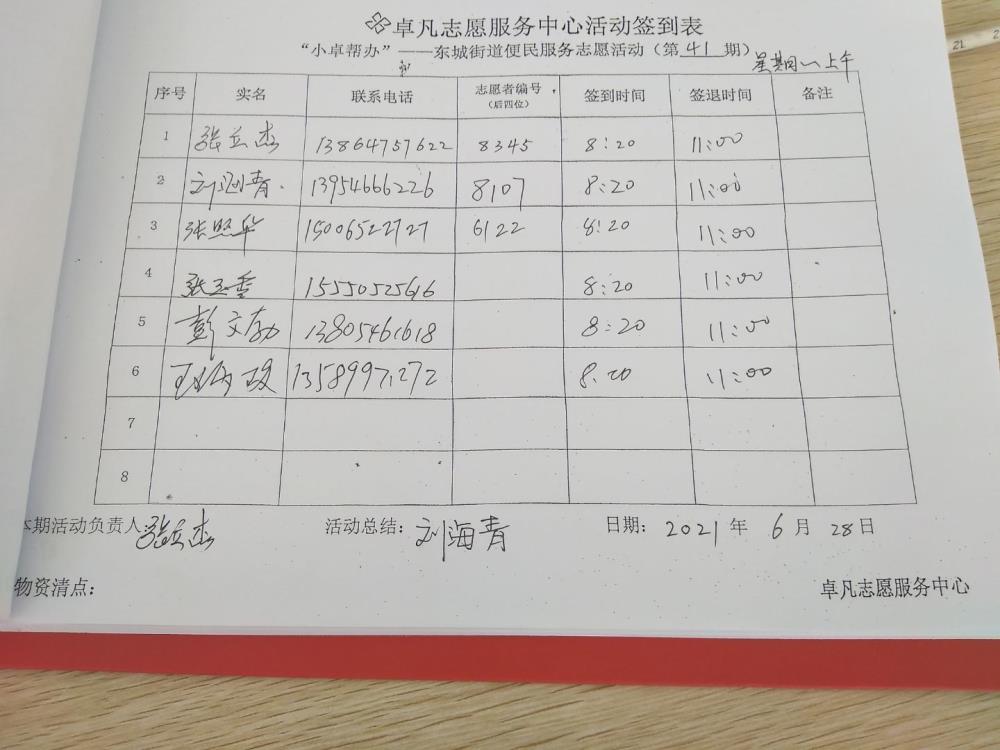 卓凡志愿服务中心活动签到表
“小卓帮办”——东城街道便民服务志愿活动（第 41 期）
星期一上午
序号 实名 联系电话 志愿者编号（后四位） 签到时间 签退时间 备注
1 张立杰 13864757622 8345 8:20 11:00
2 刘海青 13954666226 8107 8:20 11:00
3 张照华 15006522727 6122 8:20 11:00
4 张玉香 15550525616 8:20 11:00
5 彭文 13805461618 8:20 11:00
6 8:20 11:00
7
8
本期活动负责人 张立杰 活动总结： 刘海青 日期： 2021 年 6 月 28 日
物资清点： 卓凡志愿服务中心
21